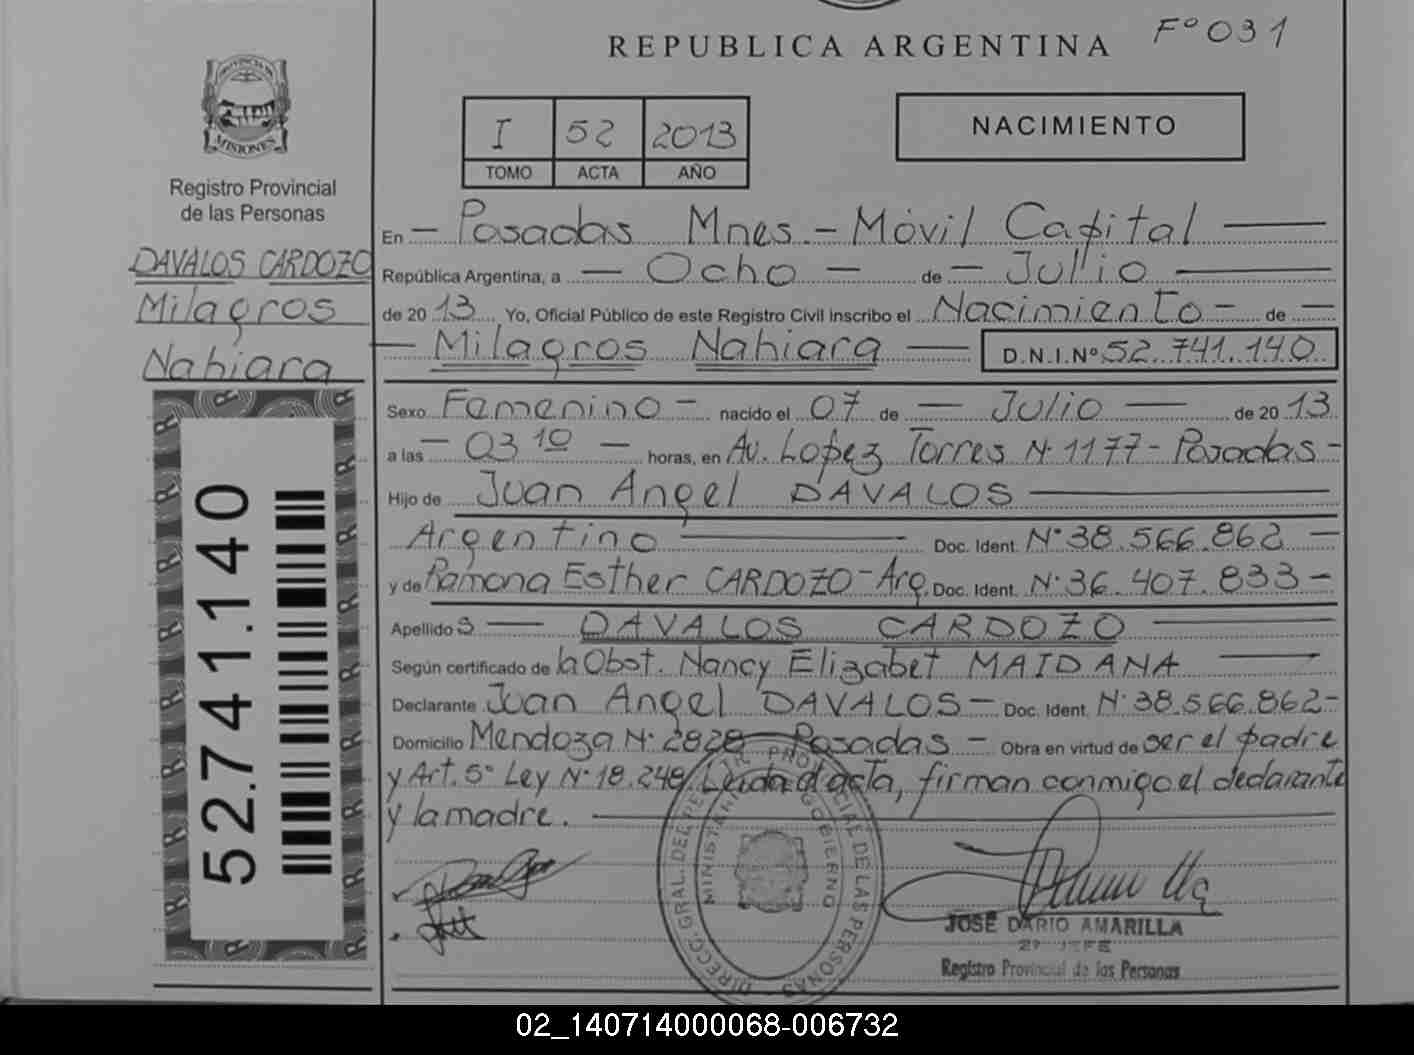 F° 031
REPUBLICA ARGENTINA
PROVINCIA DE
MISIONES
Registro Provincial
de las Personas
I 52 2013
TOMO ACTA AÑO
NACIMIENTO
DAVALOS CARDOZO
Milagros
Nahiara
52.741.140
En — Posadas Mnes. - Móvil Capital —
República Argentina, a — Ocho — de — Jullio —
de 20 13 Yo, Oficial Público de este Registro Civil inscribo el Nacimiento — de —
— Milagros Nahiara — D.N.I.Nº 52.741.140
Sexo Femenino — nacido el 07 de — Julio — de 20 13
a las — 03 10 — horas, en Av. Lopez Torres N° 1177 - Posadas -
Hijo de Juan Angel DAVALOS —
Argentino — Doc. Ident. N° 38.566.862 —
y de Ramona Esther CARDOZO - Arg. Doc. Ident. N° 36.407.833 -
Apellido s — DAVALOS CARDOZO —
Según certificado de la Obst. Nancy Elizabet MAIDANA —
Declarante Juan Angel DAVALOS — Doc. Ident. N° 38.566.862 -
Domicilio Mendoza N° 2828 — Posadas — Obra en virtud de ser el padre
y Art. 5° Ley N° 18.248. Leida el acta, firman conmigo el declarante
y la madre. —
DIRECC. GRAL. DEL REG. PROVINCIAL DE LAS PERSONAS
GOBIERNO
JOSE DARIO AMARILLA
2º JEFE
Registro Provincial de las Personas
02_140714000068-006732